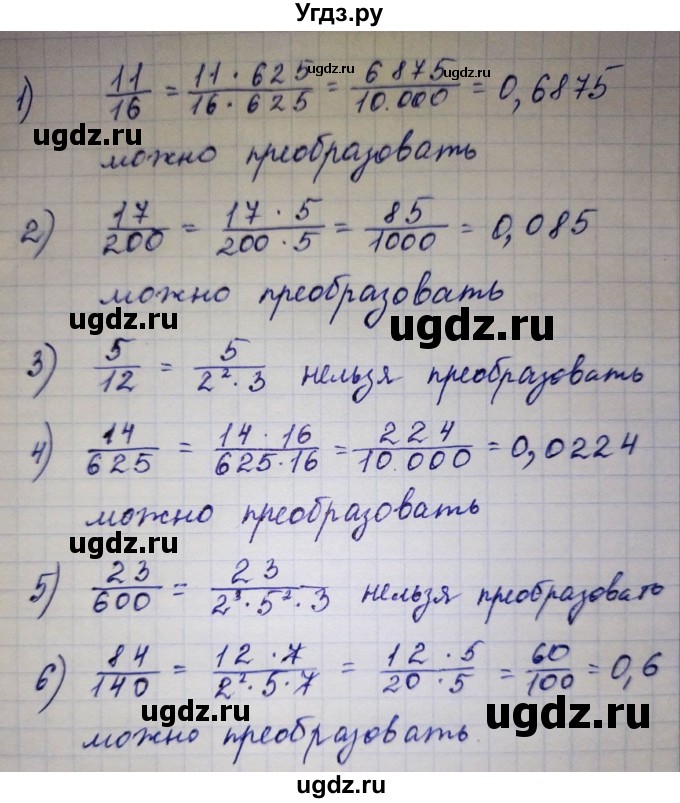 Угдз.ру
1) 11/16 = 11·625/16·625 = 6875/10.000 = 0,6875
ugdz.ru
ugdz.ru
ugdz.ru
можно преобразовать
2) 17/200 = 17·5/200·5 = 85/1000 = 0,085
ugdz.ru
можно преобразовать
ugdz.ru
ugdz.ru
3) 5/12 = 5/2²·3 нельзя преобразовать
4) 14/625 = 14·16/625·16 = 224/10.000 = 0,0224
ugdz.ru
можно преобразовать
ugdz.ru
5) 23/600 = 23/2³·5²·3 нельзя преобразовать
ugdz.ru
6) 84/140 = 12·7/2²·5·7 = 12·5/20·5 = 60/100 = 0,6
ugdz.ru
ugdz.ru
можно преобразовать.
ugdz.ru